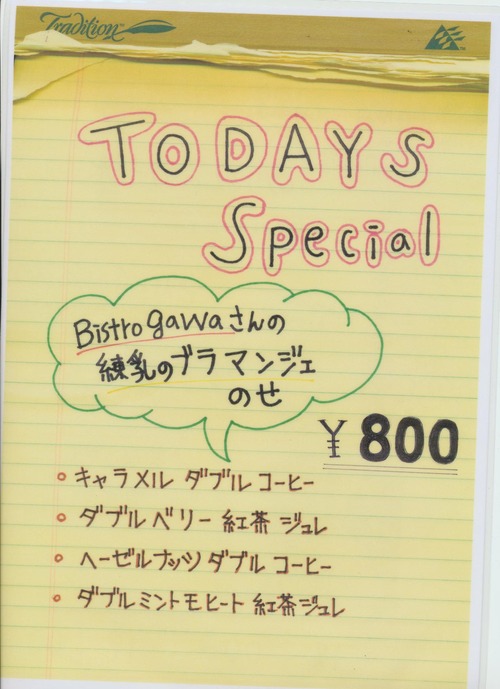 Tradition™
TODAYS
Special
Bistro gawaさんの
練乳のブラマンジェ
のせ
¥800
• キャラメル ダブル コーヒー
• ダブル ベリー 紅茶 ジュレ
• ヘーゼルナッツ ダブル コーヒー
• ダブルミントモヒート 紅茶ジュレ